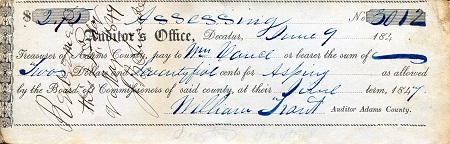 $2.75 Assessing No. 3012
Auditor's Office, Decatur, June 9 184
Treasurer of Adams County, pay to Wm Vance or bearer the sum of
Two Dollars and Seventyfive cents for Assing as allowed
by the Board of Commissioners of said county, at their June term, 1847
William Trout Auditor Adams County.